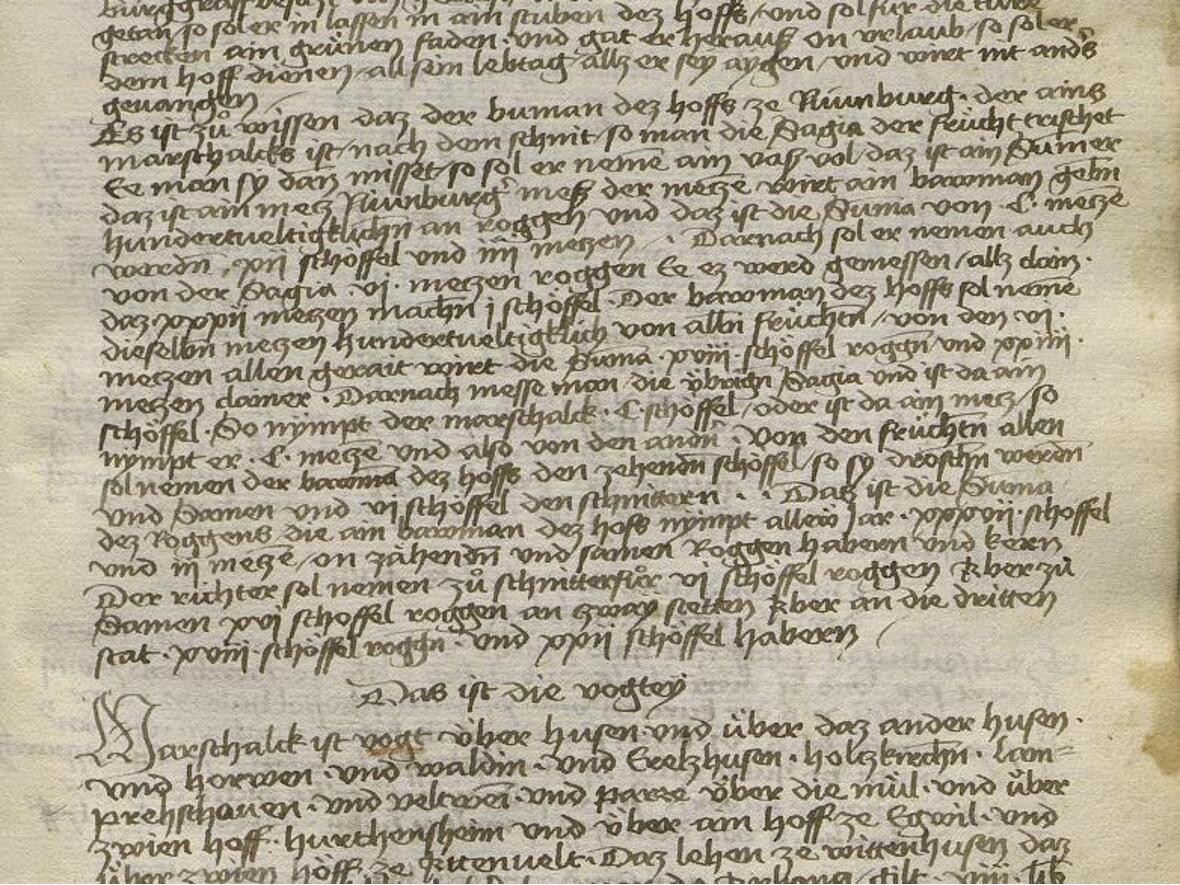 getan so sol er in lassen in ain stuben dez hoffs / und sol für die türe
strecken ain grünen faden · und gat er herauß on vrlaub / so sol er
dem hoff dienen / all sein lebtag / allz er sey aygen / und wirt nit anders
geuangen
Es ist zů wissen daz der buman dez hoffs ze Nüwnburg · der ains
marschalcks ist / nach dem schnit / so man die Sagia der frücht trischet
Ee man sy dan misset / so sol er neme ain vaß vol / daz ist ain Sumer
daz ist ain mecz Nüwnburger meß der mecze wirt ain bawman gebn
hundertueltigklichn an roggen und daz ist die Suma von · C · mecze
werdn · xii schöffel und iiii meczen · Darnach sol er nemen auch
von der Sagia · vi · meczen roggen Ee ez werd gemessen / allz dain ·
daz xxxii meczen machn i schöffel · Der bawman dez hoffs sol neme
dieselbn meczen hundertueltigklich von allen früchtn / von den vi ·
meczen allen gerait wirt die Suma · xviii · schöffel roggn und xxiiii ·
meczen · Darnach messe man die übrign Sagia und ist da ain
schöffel · So nympt der marschalck · C · schöffel / oder ist da ain mecz / so
nympt er · C · mecze und also von den andn · Von den früchtn allen
sol nemen der bawma dez hoffs den zehendn schöffel / so sy droschn werdn
und Samen und vi schöffel den schnittern · · Daß ist die Suma
dez Roggens die ain bawman dez hofs nympt allew Jar · xxxvii · schöffel
und iii mecze / on zähendn und samen Roggen habern und kern
Der richter sol nemen zů schnitterfůr vi schöffel roggen Aber zů
Samen xvi schöffel roggen an zway stetten Aber an die dritten
stat · xviii · schöffel roggn · und xxii schöffel habern
Das ist die vogtey
Marschalck ist vogt über husen und über daz ander husen ·
und horwen · und waldin · und Erelzhusen · holzkirchn · Lam=
prehshouen · und veltwen · und parre über die mül · und über
zwien hoff · hurthensheim und über ain hoff ze Egwil · und
über zwien höff ze Rittenuelt · Daz lehen ze wittenhusen daz